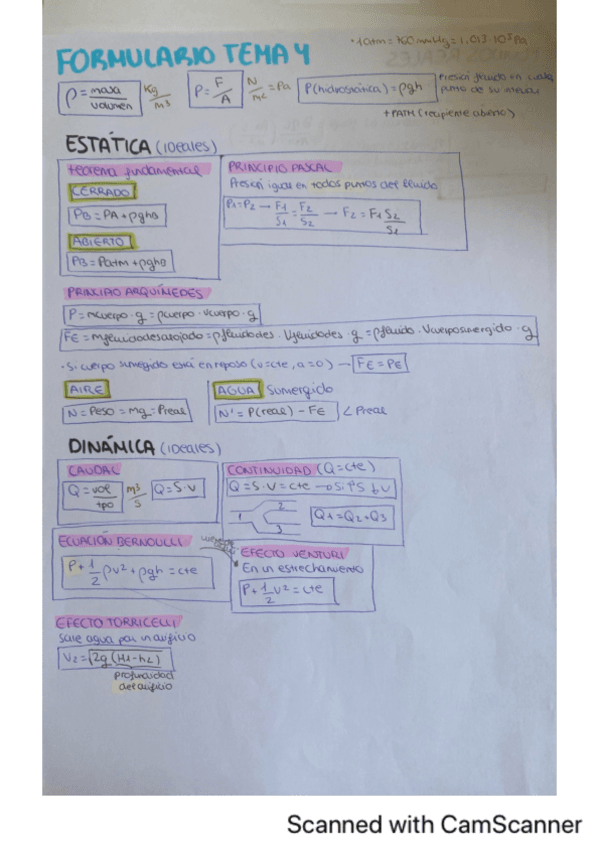 · 1 atm = 760 mmHg = 1,013·10⁵ Pa
FORMULARIO TEMA 4
ρ = masa/volumen Kg/m³ P = F/A N/m² = Pa P(hidrostática) = ρgh Presión fluido en cualq. punto de su interior
+ PATM (recipiente abierto)
ESTÁTICA (ideales)
teorema fundamental
CERRADO
PB = PA + ρghB
ABIERTO
PB = Patm + ρghB
PRINCIPIO PASCAL
Presión igual en todos puntos del fluido
P1 = P2 → F1/S1 = F2/S2 → F2 = F1 S2/S1
PRINCIPIO ARQUÍMEDES
P = mcuerpo · g = ρcuerpo · Vcuerpo · g
FE = mfluidodesalojado = ρfluidodes · Vfluidodes · g = ρfluido · Vcuerposumergido · g
· Si cuerpo sumergido está en reposo (v=cte, a=0) → FE = PE
AIRE
N = Peso = mg = Preal
AGUA Sumergido
N' = P(real) − FE < Preal
DINÁMICA (ideales)
CAUDAL
Q = vol/tpo m³/s Q = S·V
CONTINUIDAD (Q = cte)
Q = S·V = cte → Si ↑S ↓V
1 2 3 Q1 = Q2 + Q3
ECUACIÓN BERNOULLI
P + 1/2 ρv² + ρgh = cte
EFECTO VENTURI
En un estrechamiento
P + 1/2 v² = cte
EFECTO TORRICELLI
Sale agua por un orificio
V2 = √2g (H1 − h2)
profundidad
del orificio
Scanned with CamScanner